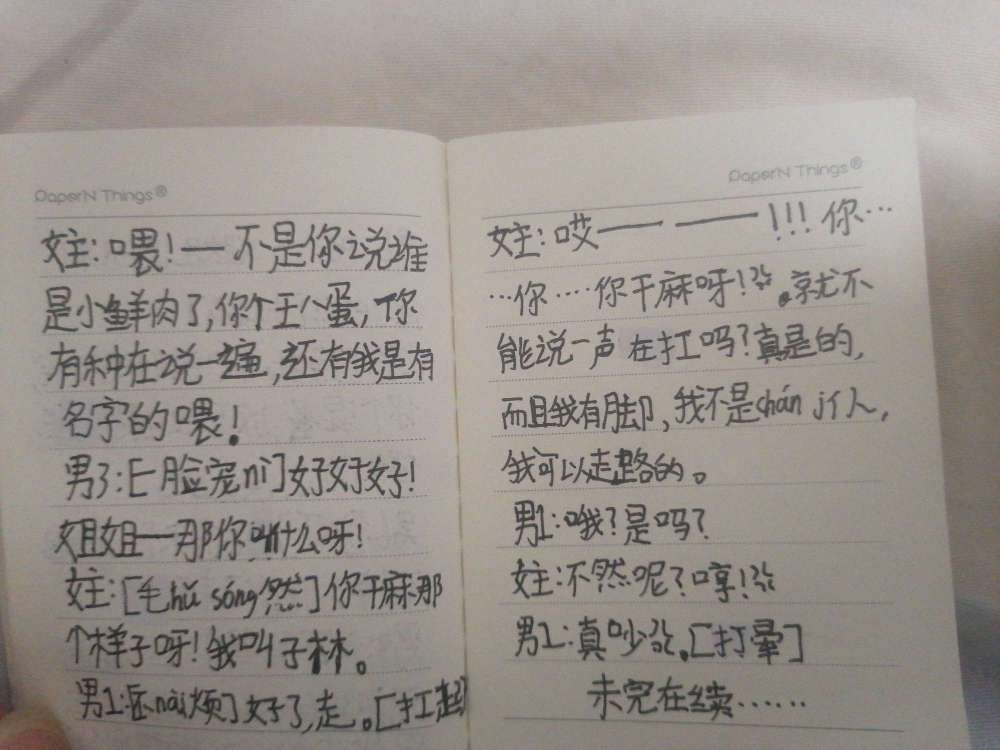 PaperN Things®
女主:喂!一不是你说谁
是小鲜肉了,你个王八蛋,你
有种在说一遍,还有我是有
名字的喂!
男3:[一脸宠nì]好好好!
姐姐一那你叫什么呀!
女主:[毛hǔ sóng然]你干麻那
个样子呀!我叫子林。
男1:[不nài烦]好了,走。[扛起]
PaperN Things®
女主:哎—— ——!!!你…
…你……你干麻呀!就不
能说一声在扛吗?真是的,
而且我有脚,我不是chán jí人,
我可以走路的。
男1:哦?是吗?
女主:不然呢?哼!
男1:真吵。[打晕]
未完在续……